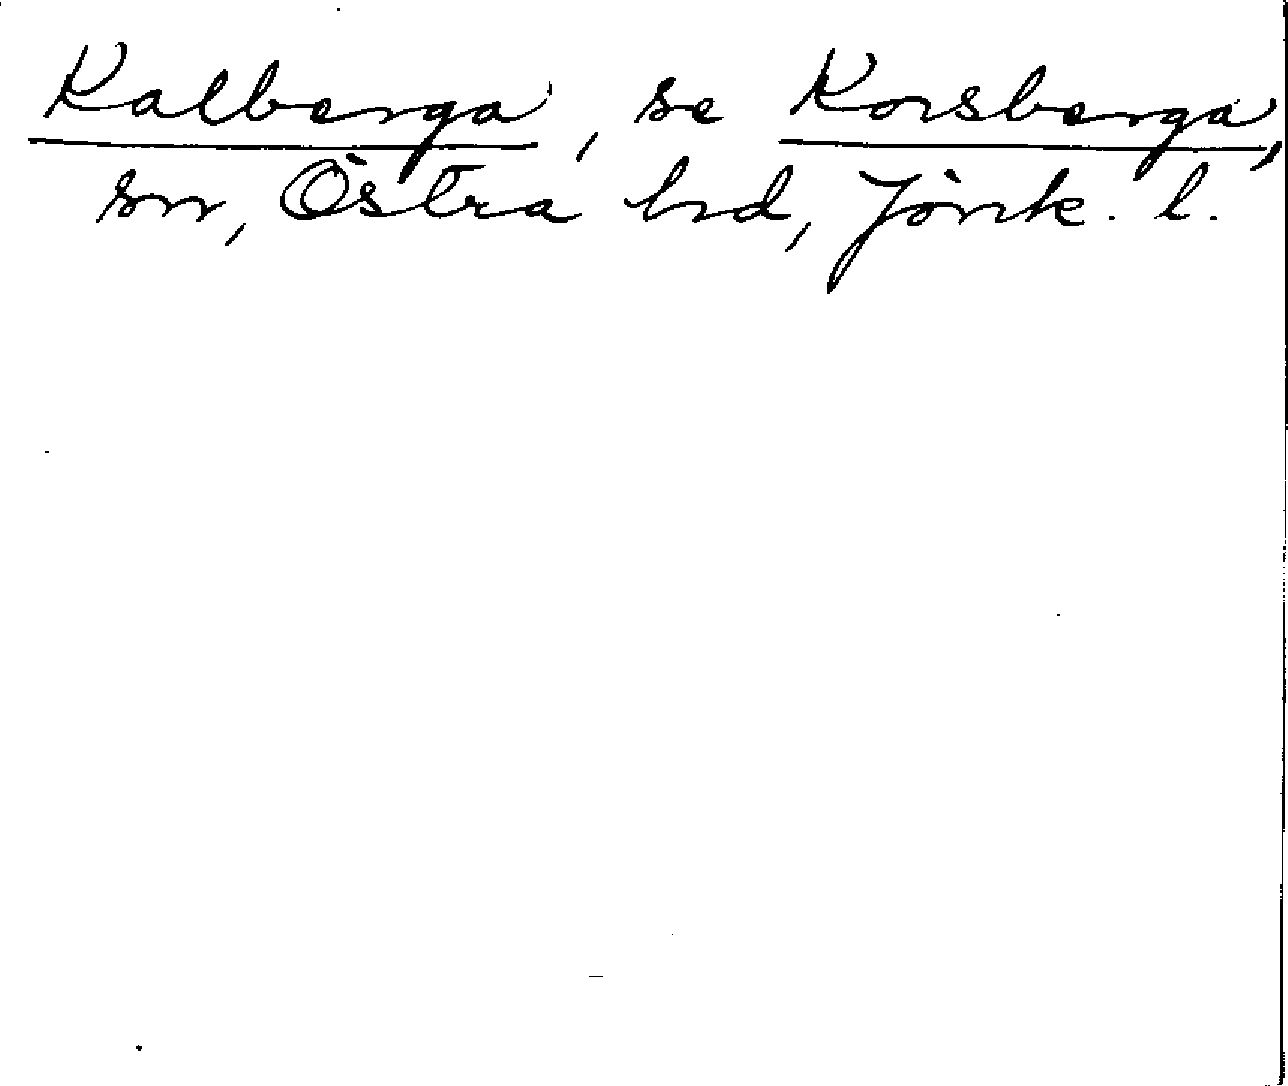 Kalberga, se Korsberga,
sn, Östra hd, Jönk. l.